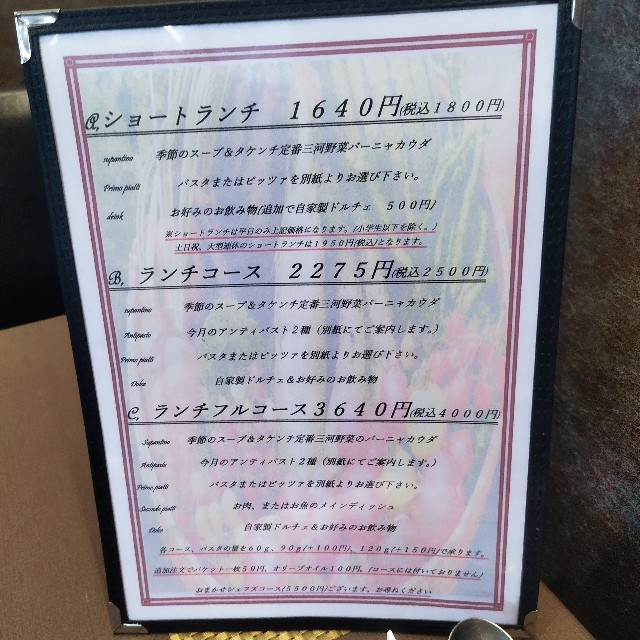 A, ショートランチ　１６４０円(税込１８００円)
supantino 季節のスープ＆タケンチ定番三河野菜バーニャカウダ
Primo piatti パスタまたはピッツァを別紙よりお選び下さい。
drink お好みのお飲み物(追加で自家製ドルチェ　５００円)
※ショートランチは平日のみ上記価格になります。(小学生以下を除く。)
土日祝、大型連休のショートランチは１９５０円(税込)となります。
B, ランチコース　２２７５円(税込２５００円)
supantino 季節のスープ＆タケンチ定番三河野菜バーニャカウダ
Antipasto 今月のアンティパスト２種（別紙にてご案内します。)
Primo piatti パスタまたはピッツァを別紙よりお選び下さい。
Dolce 自家製ドルチェ＆お好みのお飲み物
C, ランチフルコース３６４０円(税込４０００円)
Supantino 季節のスープ＆タケンチ定番三河野菜のバーニャカウダ
Antipasto 今月のアンティパスト２種（別紙にてご案内します。)
Primo piatti パスタまたはピッツァを別紙よりお選び下さい。
Secondo piatti お肉、またはお魚のメインディッシュ
Dolce 自家製ドルチェ＆お好みのお飲み物
各コース、パスタの量を６０g、９０g(＋１００円)、１２０g(＋１５０円)で承ります。
追加注文でバケット一枚５０円、オリーブオイル１００円。(コースには付いておりません)
おまかせシェフズコース(５５００円)ございます。お尋ねください